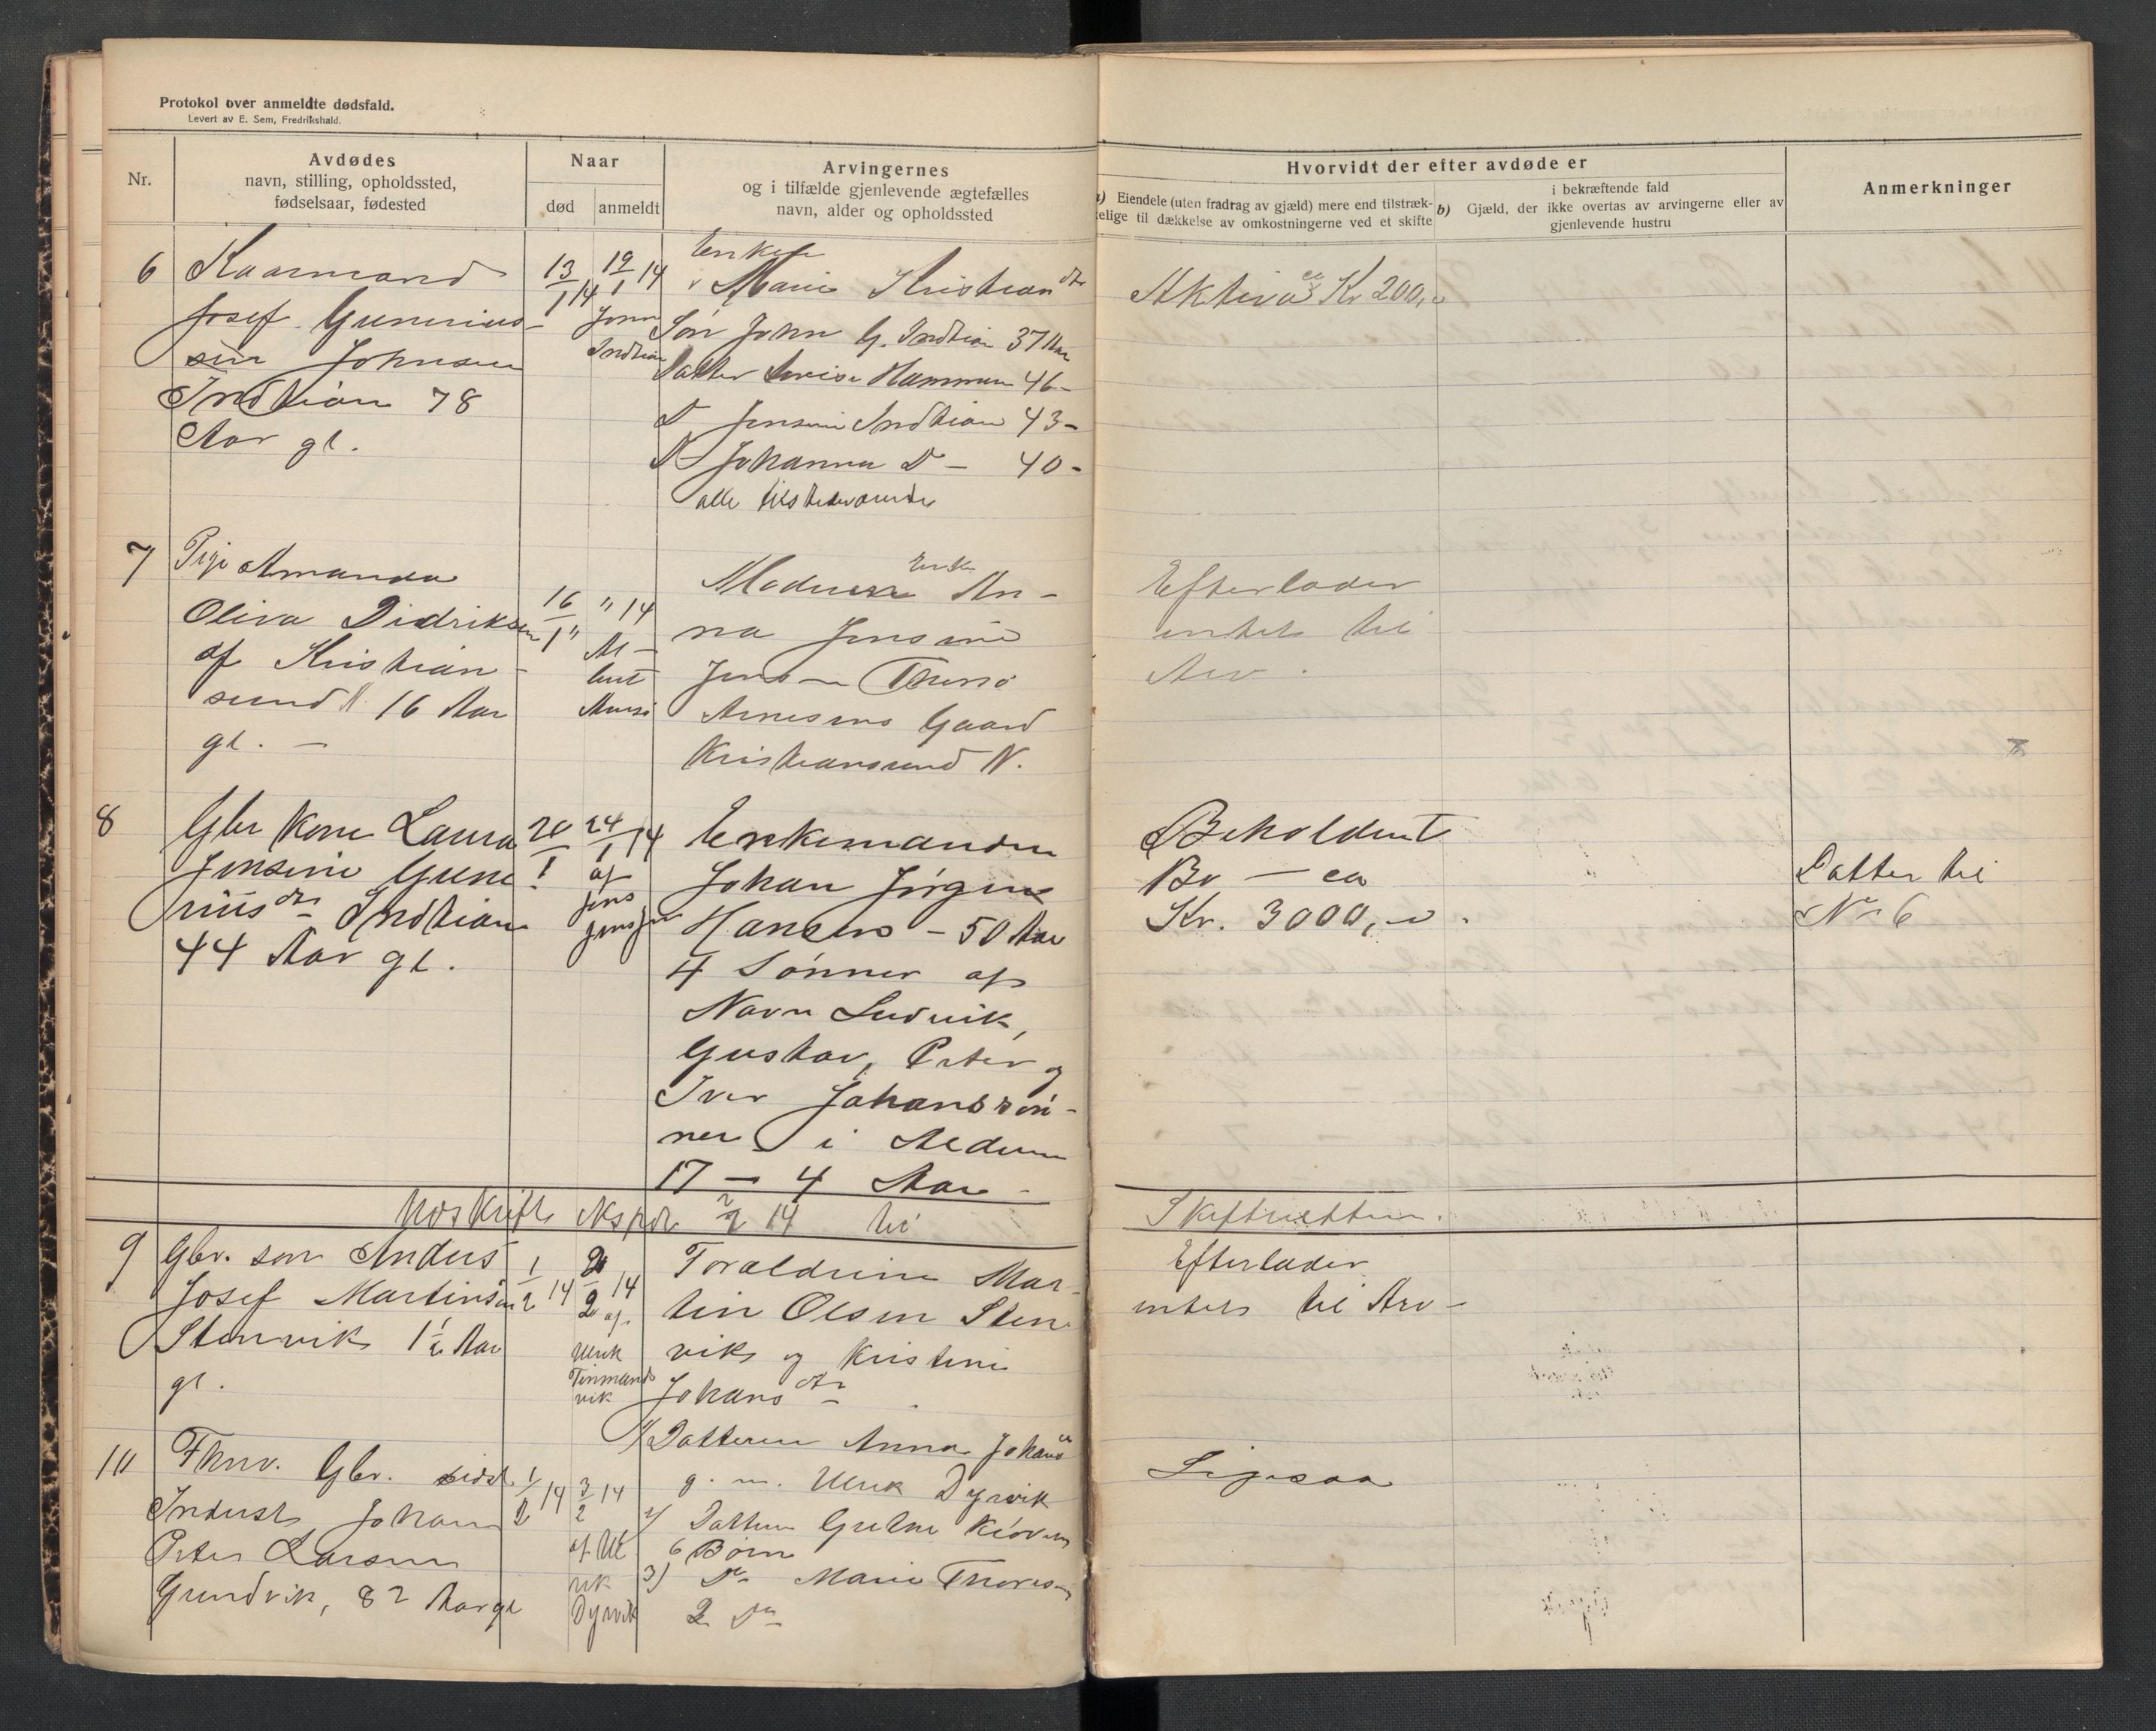 Protokol over anmeldte dødsfald.
Levert av E. Sem, Fredrikshald.
Nr.
Avdødes
navn, stilling, opholdssted,
fødselsaar, fødested
Naar
død
anmeldt
Arvingernes
og i tilfælde gjenlevende ægtefælles
navn, alder og opholdssted
Hvorvidt der efter avdøde er
a) Eiendele (uten fradrag av gjæld) mere end tilstræk-
kelige til dækkelse av omkostningerne ved et skifte
b) Gjæld, der i bekræftende fald
ikke overtas av arvingerne eller av
gjenlevende hustru
Anmerkninger
6
Kaarmand
Josef Gunerius-
sen Johnsen
Indtian 78
Aar gl.
13/1 14
19/1 14
John
Indtian
Enkefr
Marie Kristiandtr
Søn John G. Indtian 37 Aar
Datter Hammer 46 -
D Jensine Indtian 43 -
D Johanna D - 40 -
alle tilstedeværende
Aktiva ca Kr 200,-
7
Pige Amanda
Oliva Didriksen
af Kristian-
sund N. 16 Aar
gl. -
16/1 "
" 14
Al-
bert
Moderen Enke An-
na Jensine
Jensen
Arnesens Gaard
Kristiansund N.
Efterlader
intet til
Arv.
8
Gbr Kone Laura
Jensine Gune
riusdtr Indtian
44 Aar gl.
20/1
24/1 14
af
Jens
Enkemanden
Johan Jørgen
Hansen - 50 Aar
4 Sønner af
Navn Ludvik,
Gustav, Peter og
Iver Johansøn-
ner i Alderen
17 - 4 Aar -
Beholdent
Bo - ca
Kr. 3000,-
Datter til
No 6
Utskrift ekspd. 2/2 14 til
Skifteretten.
9
Gbr. søn Anders
Josef Martinsen
Stenvik 1½ Aar
gl.
1/2 14
2/2 14
af
Ulrik
Tinmands
vik
Foraldrene Mar-
tin Olsen Sten
vik og Kristine
Johansdtr
Efterlader
intet til Arv -
10
Fhnv. Gbr. sidst
Inderst Johan
Peter Larsen
Grundvik, 82 Aar gl
1/2 14
3/2 14
af Ul
rik
Dyrvik
1/ Datteren Anna Johans
g. m. Ulrik Dyrvik
2/ Datteren
6 Børn
3) Do Marie Thoresen
2 Do
Ligesaa